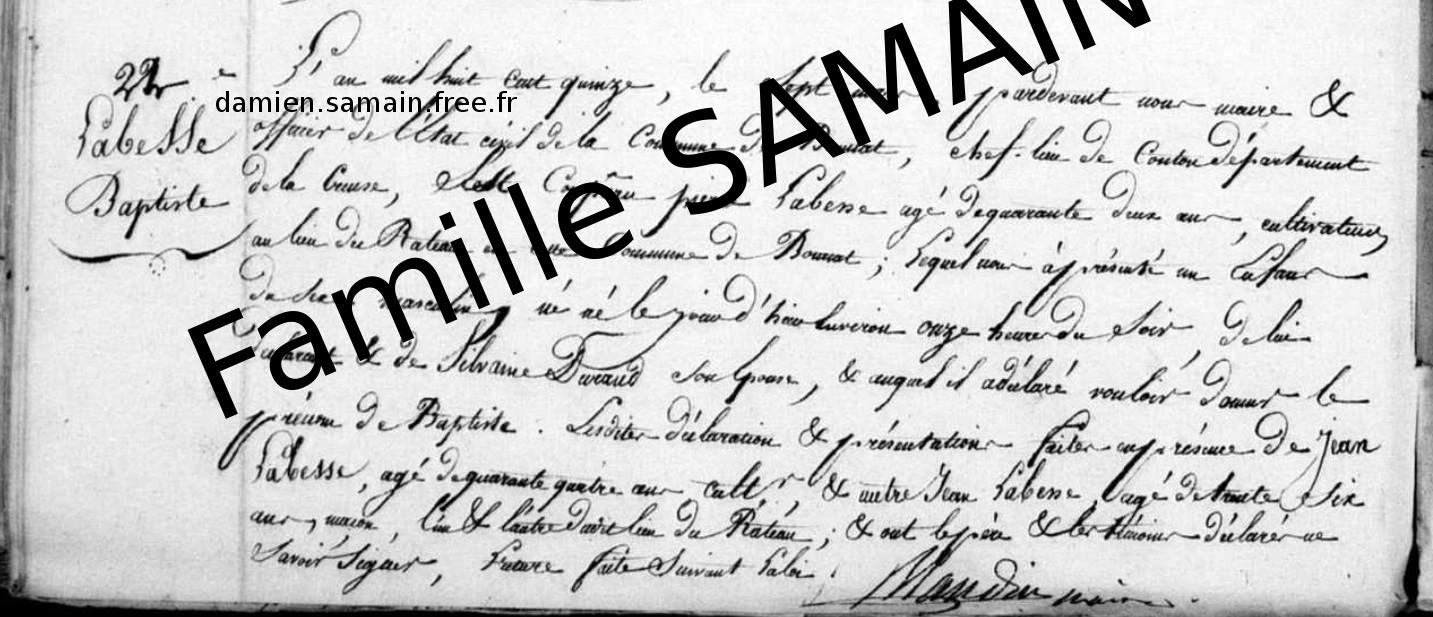 22e
Labesse
Baptiste
damien.samain.free.fr
Famille SAMAIN
L'an mil huit cent quinze, le sept mars, pardevant nous maire &
officier de l'état civil de la Commune de Bonnat, chef-lieu de Canton département
de la Creuse, est Comparu pierre Labesse agé de quarante deux ans, cultivateur
au lieu du Rateau en cette Commune de Bonnat; lequel nous à présenté un Enfant
du Sexe masculin, né le jour d'hier Environ onze heures du Soir, de lui
déclarant & de Silvaine Durand Son Epouse, & auquel il a déclaré vouloir donner le
prénom de Baptiste. Lesdites déclaration & présentation faites en présence de Jean
Labesse, agé de quarante quatre ans cultr, & autre Jean Labesse, agé de trente Six
ans, maçon, l'un & l'autre dudit lieu du Râteau; & ont le père & les témoins déclaré ne
Savoir Signer, Lecture faite Suivant La loi.
Maudin maire